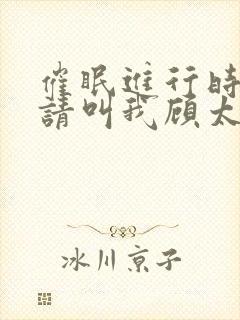 催眠進行時
請叫我顾太
冰川京子